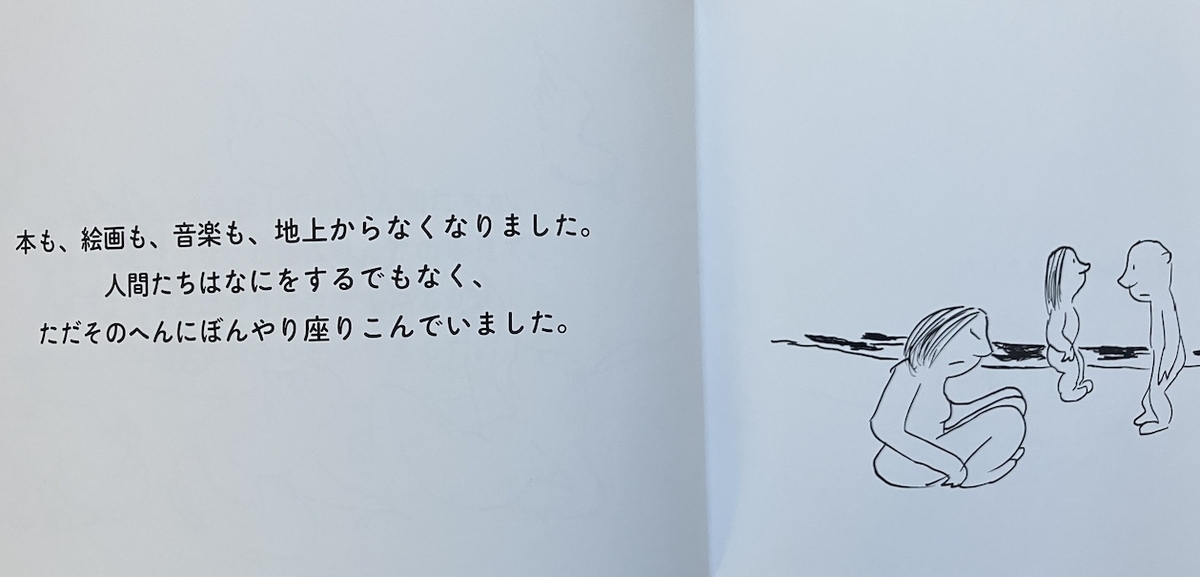 本も、絵画も、音楽も、地上からなくなりました。
人間たちはなにをするでもなく、
ただそのへんにぼんやり座りこんでいました。